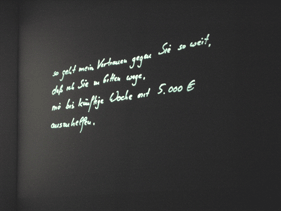 so geht mein Vertrauen gegen Sie so weit,
daß ich Sie zu bitten wage,
mir bis künftige Woche mit 5.000 €
auszuhelfen.